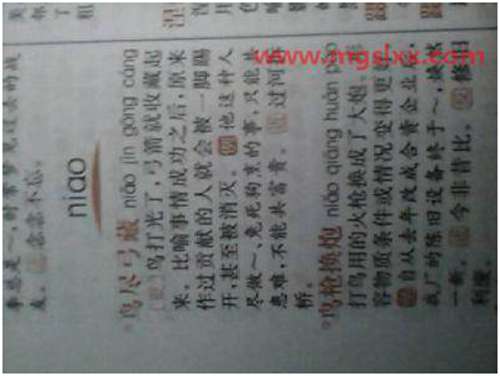 事总是~,时常梦见过去的战
友。念念不忘。
niao
鸟尽弓藏 niǎo jìn gōng cáng
鸟打光了,弓箭就收藏起
来。比喻事情成功之后,原来
作过贡献的人就会被一脚踢
开,甚至被消灭。例他这种人
尽做~、兔死狗烹的事,只能共
患难,不能共富贵。过河
桥。
鸟枪换炮 niǎo qiāng huàn pào
打鸟用的火枪换成了大炮。形
容物质条件或情况变得更
自从去年改成合资企业
我厂的陈旧设备终于~,焕然
一新。今非昔比。修旧
利废。
www.mgslxx.com